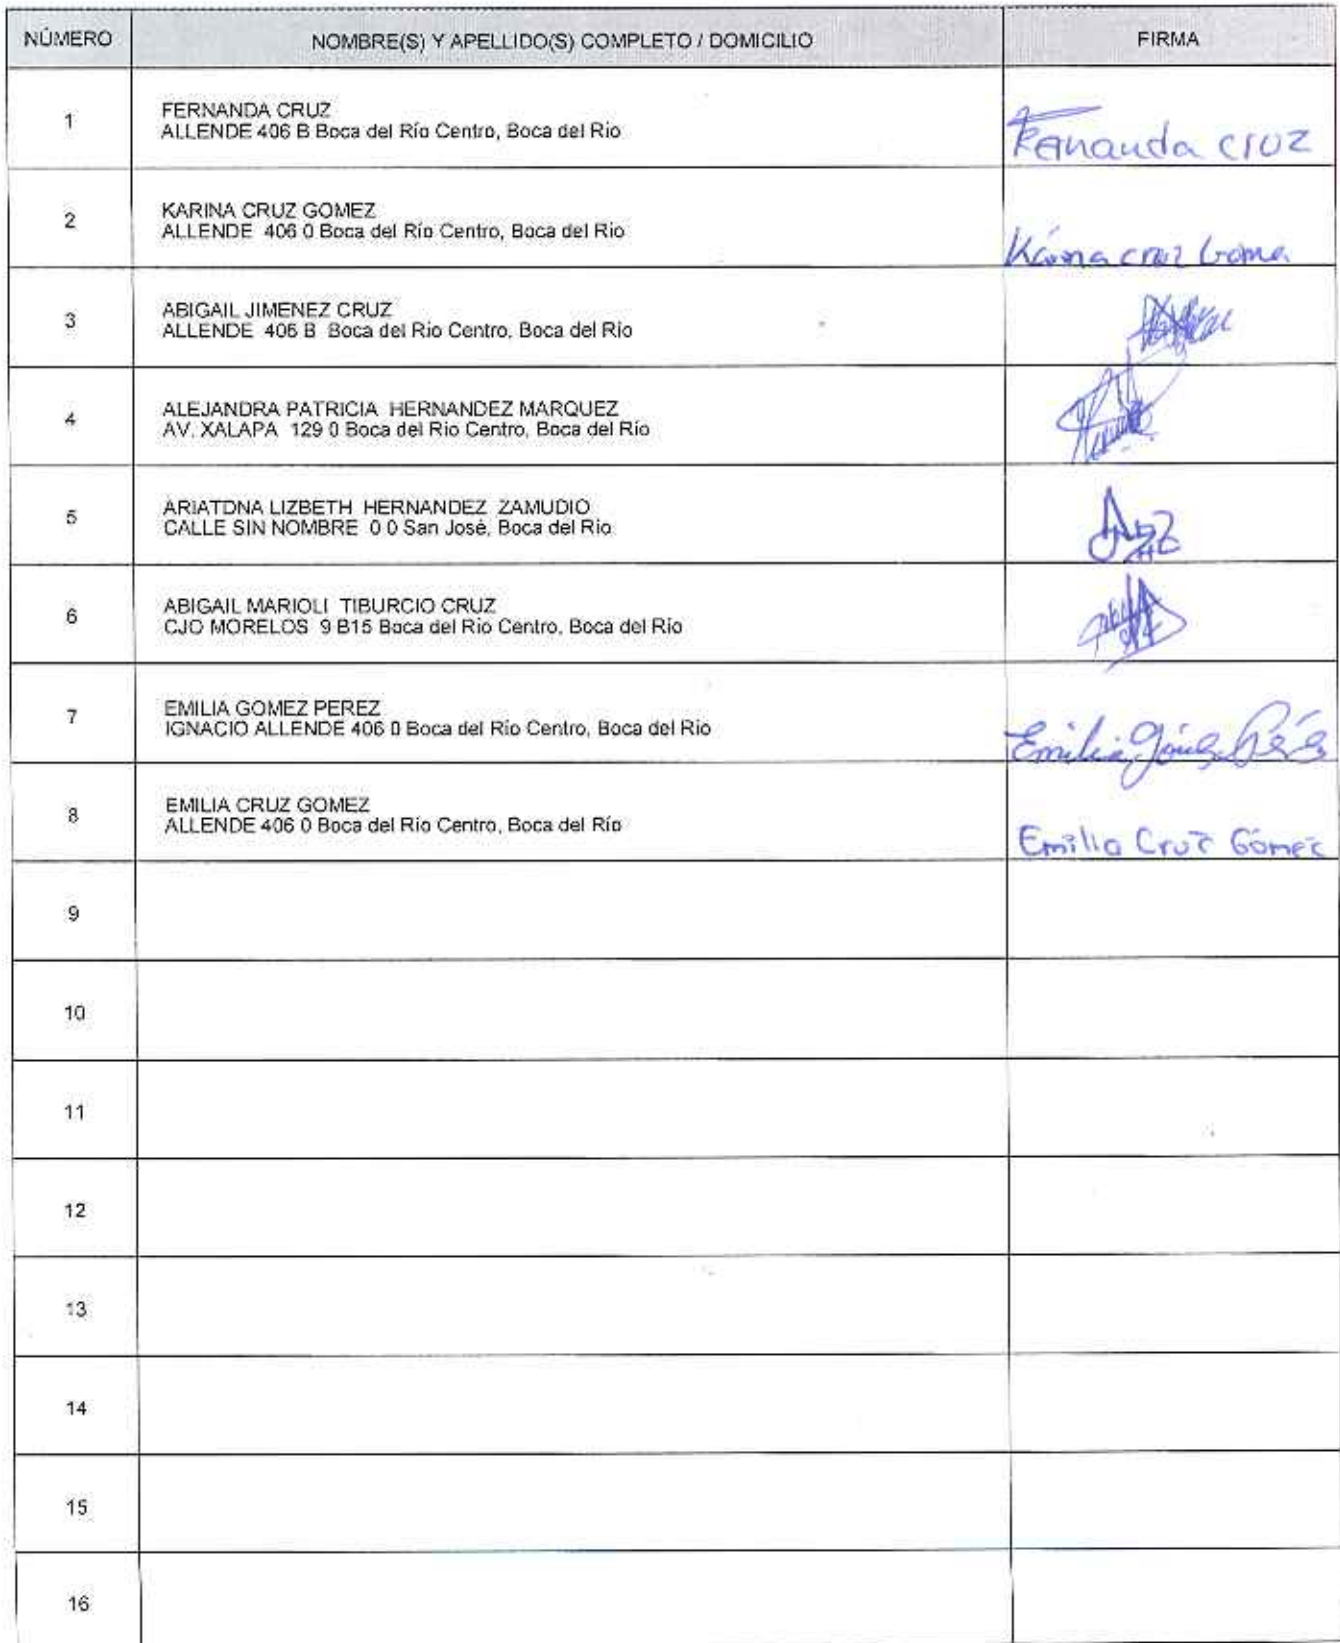 NÚMERO NOMBRE(S) Y APELLIDO(S) COMPLETO / DOMICILIO FIRMA
1 FERNANDA CRUZ
ALLENDE 406 B Boca del Río Centro, Boca del Rio
Fernanda cruz
2 KARINA CRUZ GOMEZ
ALLENDE 406 0 Boca del Río Centro, Boca del Rio
Karina cruz Gome
3 ABIGAIL JIMENEZ CRUZ
ALLENDE 406 B Boca del Rio Centro, Boca del Río
4 ALEJANDRA PATRICIA HERNANDEZ MARQUEZ
AV. XALAPA 129 0 Boca del Rio Centro, Boca del Río
5 ARIATDNA LIZBETH HERNANDEZ ZAMUDIO
CALLE SIN NOMBRE 0 0 San José, Boca del Río
6 ABIGAIL MARIOLI TIBURCIO CRUZ
CJO MORELOS 9 B15 Boca del Rio Centro, Boca del Río
7 EMILIA GOMEZ PEREZ
IGNACIO ALLENDE 406 0 Boca del Río Centro, Boca del Rio
Emilia Gómez Pérez
8 EMILIA CRUZ GOMEZ
ALLENDE 406 0 Boca del Río Centro, Boca del Río
Emilia Cruz Gómez
9
10
11
12
13
14
15
16